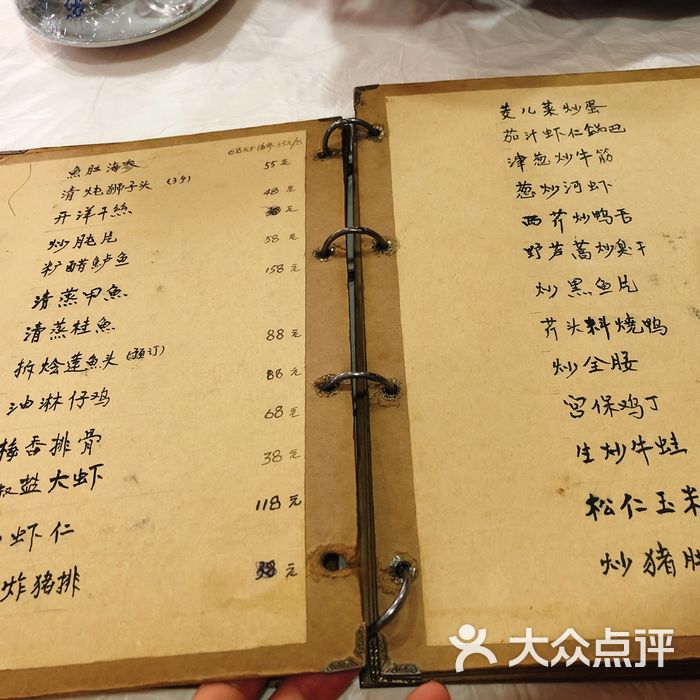 68元/对 海参 35元/只
鱼肚海参 55元
清炖狮子头 (3个) 48元
开洋干絲
炒肫片 58元
籽醋鲈鱼 158元
清蒸甲魚
清蒸桂魚 88元
拆烩莲魚头 (预订) 88元
油淋仔鸡 68元
梅香排骨 38元
椒盐大虾 118元
虾仁
炸猪排 元
茭儿菜炒蛋
茄汁虾仁锅巴
津葱炒牛筋
葱炒河虾
西芹炒鸭舌
野芦蒿炒臭干
炒黑鱼片
芋头料烧鸭
炒全腰
宫保鸡丁
生炒牛蛙
松仁玉米
炒猪肚
大众点评